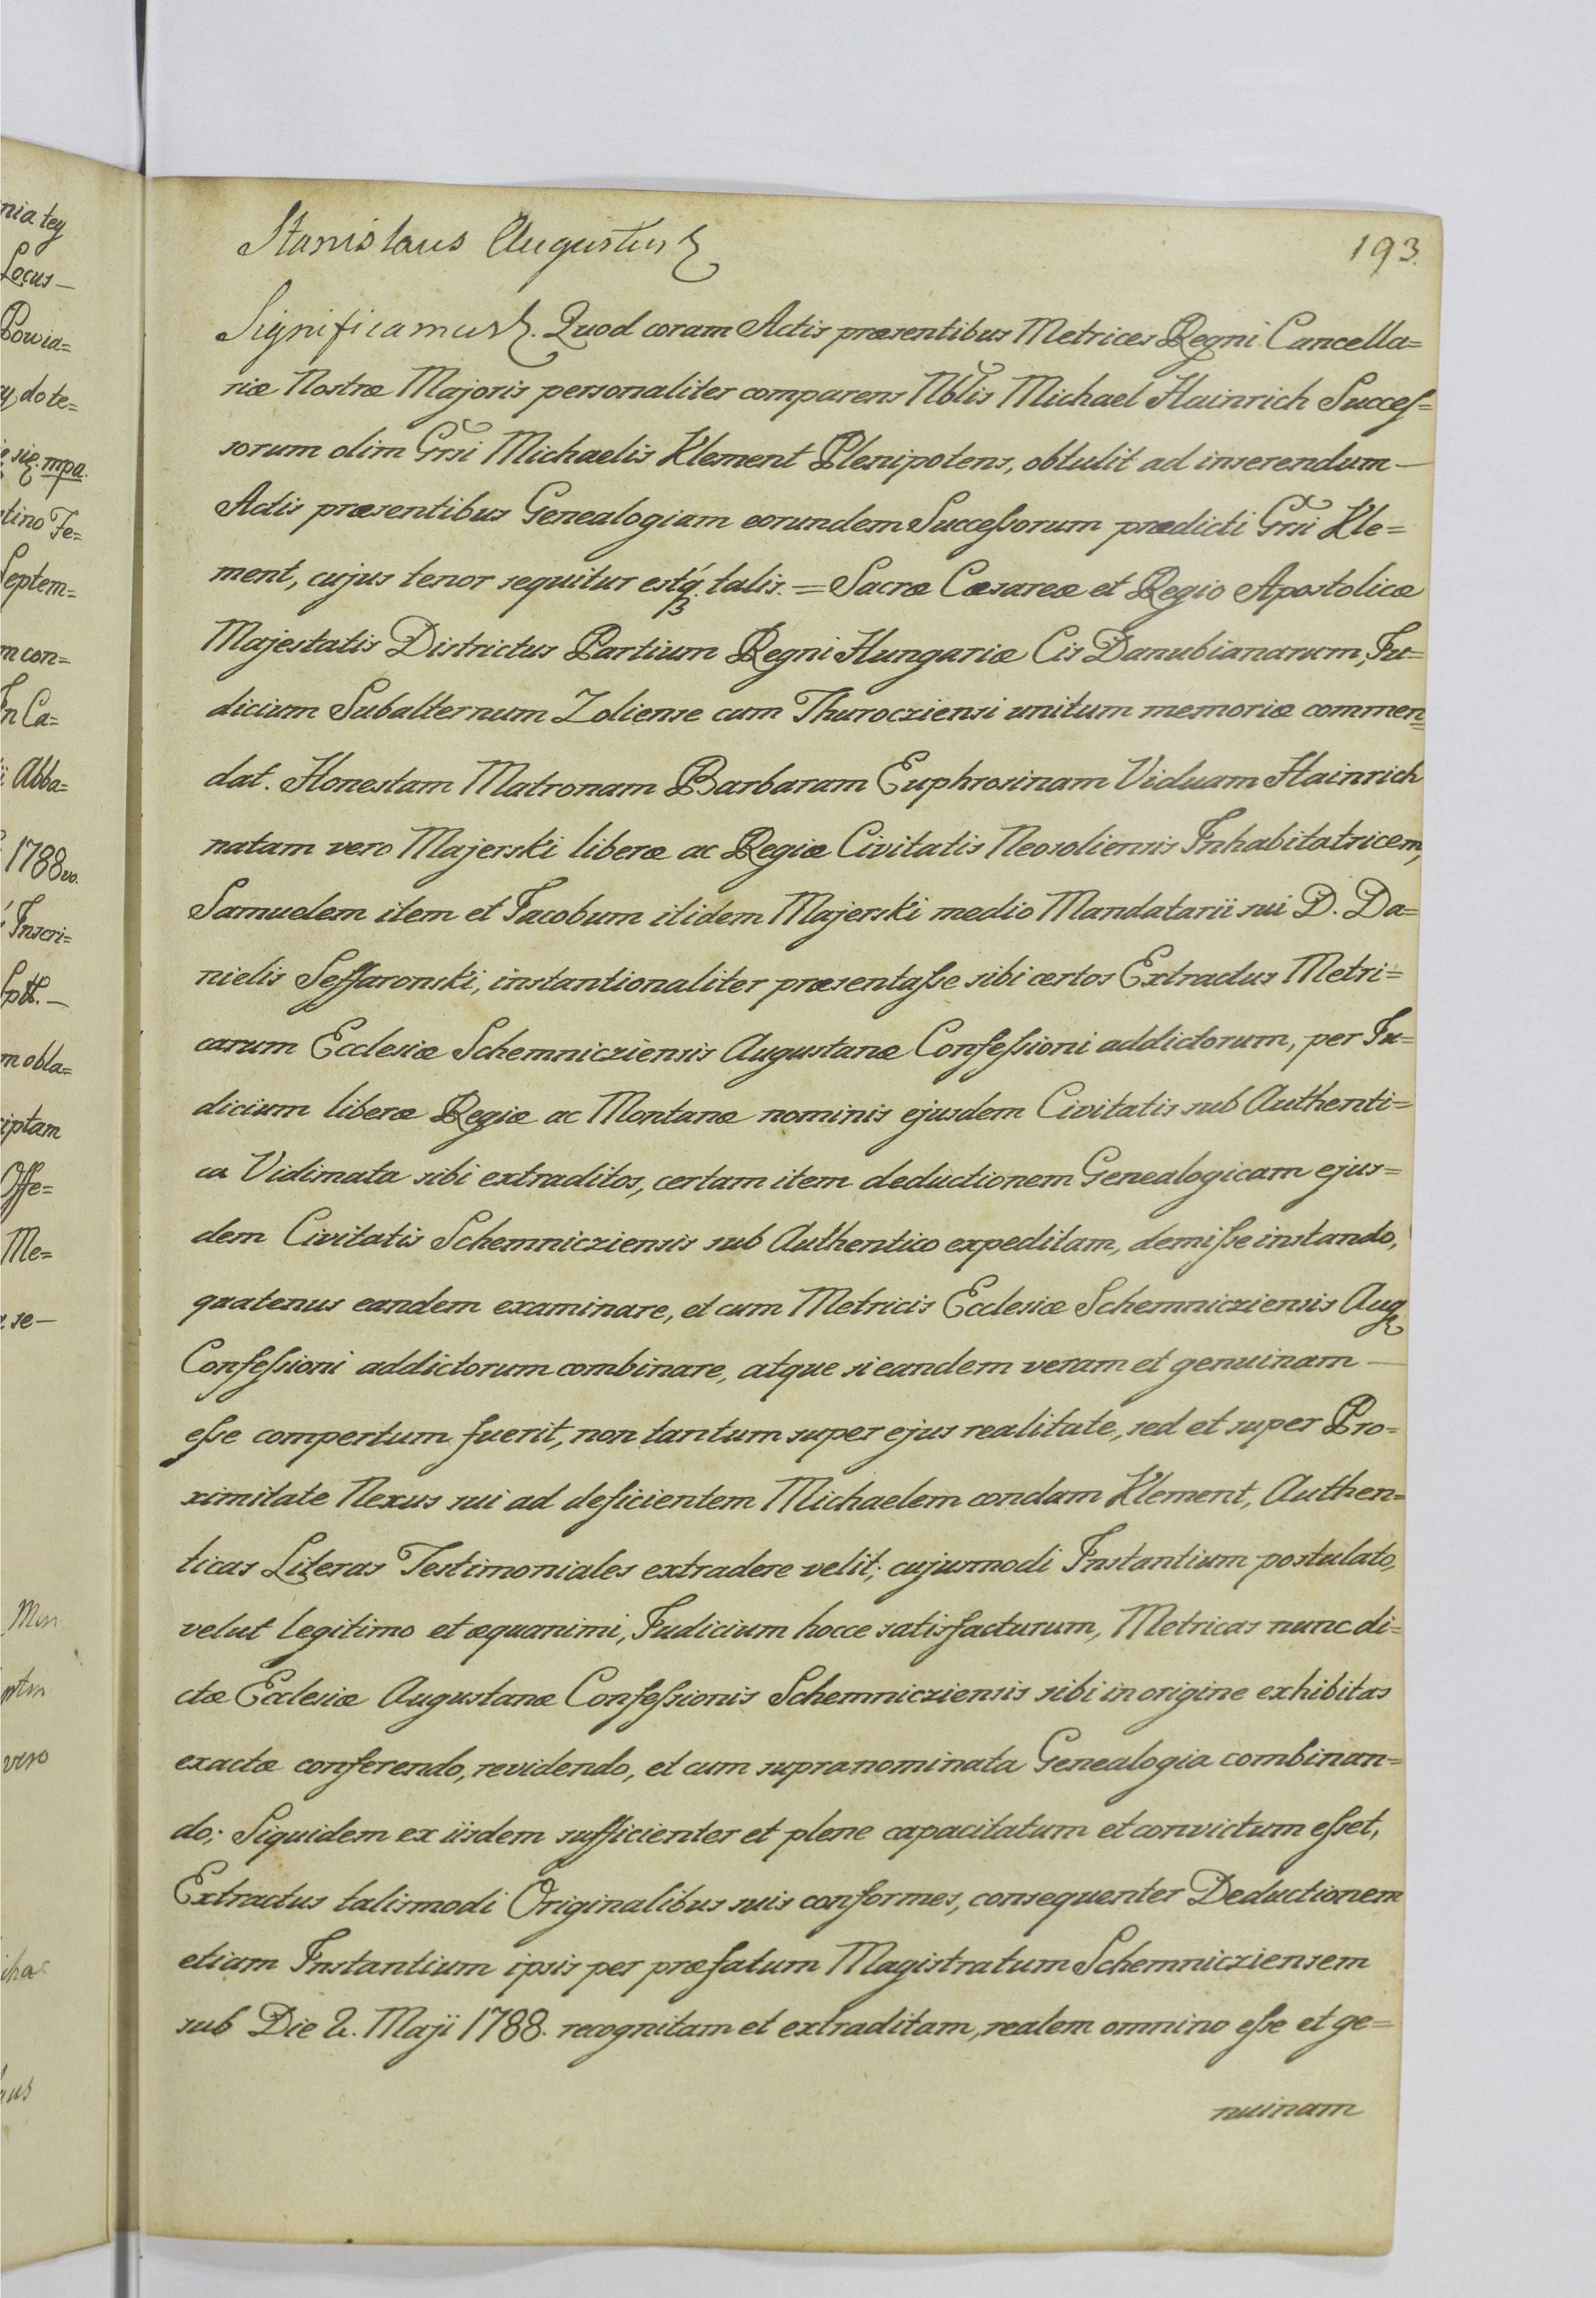 nia tey
Locus —
Powia=
y do te=
sig. mpa.
tino Fe=
Septem=
m con=
In Ca=
Abba=
1788vo.
Inscri=
m obla=
iptam
Offe=
Me=
se —
vero
193.
Stanislaus Augustus
Significamus. Quod coram Actis præsentibus Metrices Regni Cancella=
riæ Nostræ Majoris personaliter comparens Nblis Michael Hainrich Succes=
sorum olim Grsi Michaelis Klement Plenipotens, obtulit ad inserendum —
Actis præsentibus Genealogiam eorundem Successorum prædicti Grsi Kle=
ment, cujus tenor sequitur estq. talis. = Sacræ Cæsareæ et Regio Apostolicæ
Majestatis Districtus Partium Regni Hungariæ Cis Danubianarum, Ju=
dicium Subalternum Zoliense cum Thurocziensi unitum memoriæ commen=
dat. Honestam Matronam Barbaram Euphrosinam Viduam Hainrich
natam vero Majerski liberæ ac Regiæ Civitatis Neosoliensis Inhabitatricem,
Samuelem item et Jacobum itidem Majerski medio Mandatarii sui D. Da=
nielis Seffaronski, instantionaliter præsentasse sibi certos Extractus Metri=
carum Ecclesiæ Schemnicziensis Augustanæ Confessioni addictorum, per Ju=
dicium liberæ Regiæ ac Montanæ nominis ejusdem Civitatis sub Authenti=
ca Vidimata sibi extraditos, certam item deductionem Genealogicam ejus=
dem Civitatis Schemnicziensis sub Authentico expeditam, demisse instando,
quatenus eandem examinare, et cum Metricis Ecclesiæ Schemnicziensis Aug
Confessioni addictorum combinare, atque si eandem veram et genuinam —
esse compertum fuerit, non tantum super ejus realitate, sed et super Pro=
ximitate Nexus sui ad deficientem Michaelem condam Klement, Authen=
ticas Literas Testimoniales extradere velit; cujusmodi Instantium postulato,
velut legitimo et æquanimi, Judicium hocce satisfacturum, Metricas nunc di=
ctæ Ecclesiæ Augustanæ Confessionis Schemnicziensis sibi in origine exhibitas
exactæ conferendo, revidendo, et cum supranominata Genealogia combinan=
do; Siquidem ex iisdem sufficienter et plene capacitatum et convictum esset,
Extractus talismodi Originalibus suis conformes, consequenter Deductionem
etiam Instantium ipsis per præfatum Magistratum Schemnicziensem
sub Die 2. Maji 1788. recognitam et extraditam, realem omnino esse et ge=
nuinam